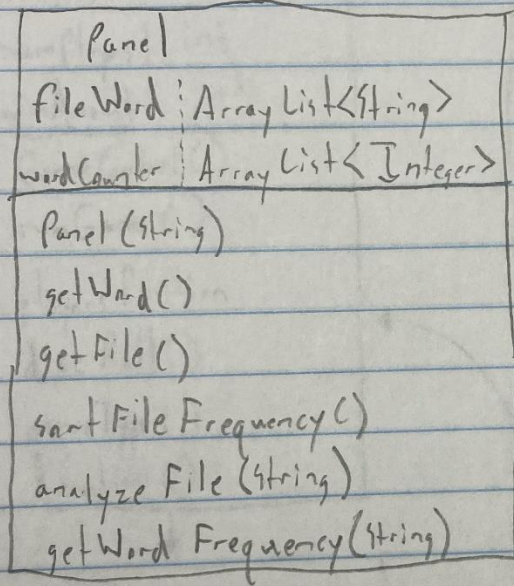 Panel
fileWord : ArrayList<String>
wordCounter : ArrayList<Integer>
Panel (String)
getWord()
getFile()
sortFileFrequency()
analyzeFile(String)
getWordFrequency(String)